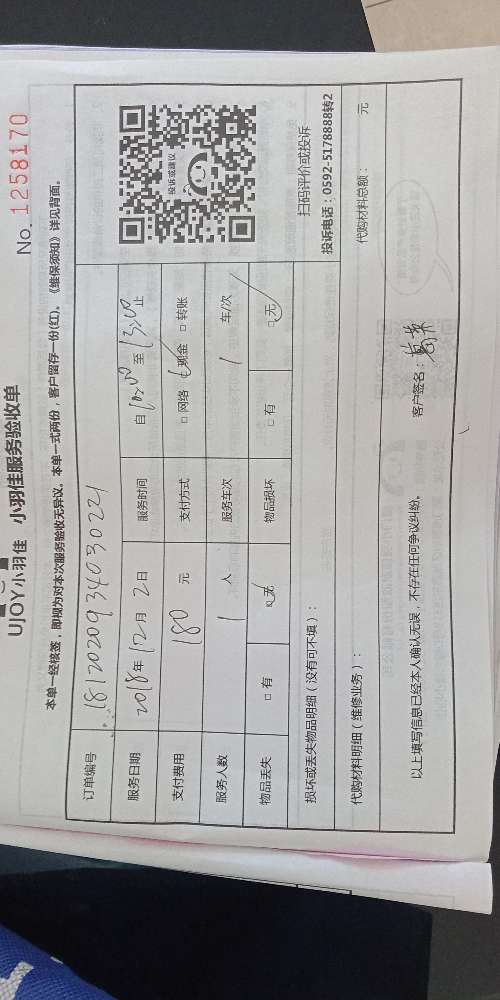 UJOY小羽佳 小羽佳服务验收单
No. 1258170
本单一经核签，即视为对本次服务验收无异议。本单一式两份，客户留存一份(红)。《维保须知》详见背面。
订单编号 181202093403022
服务日期 2018年12月2日 服务时间 自10:00至13:00止
支付费用 180元 支付方式 □网络 □现金 □转账
服务人数 1人 服务车次 1车/次
物品丢失 □有 □无 物品损坏 □有 □无
投诉或建议
扫码评价或投诉
投诉电话：0592-5178888转2
损坏或丢失物品明细（没有可不填）：
代购材料明细（维修业务）： 代购材料总额： 元
以上填写信息已经本人确认无误，不存在任何争议纠纷。 客户签名：